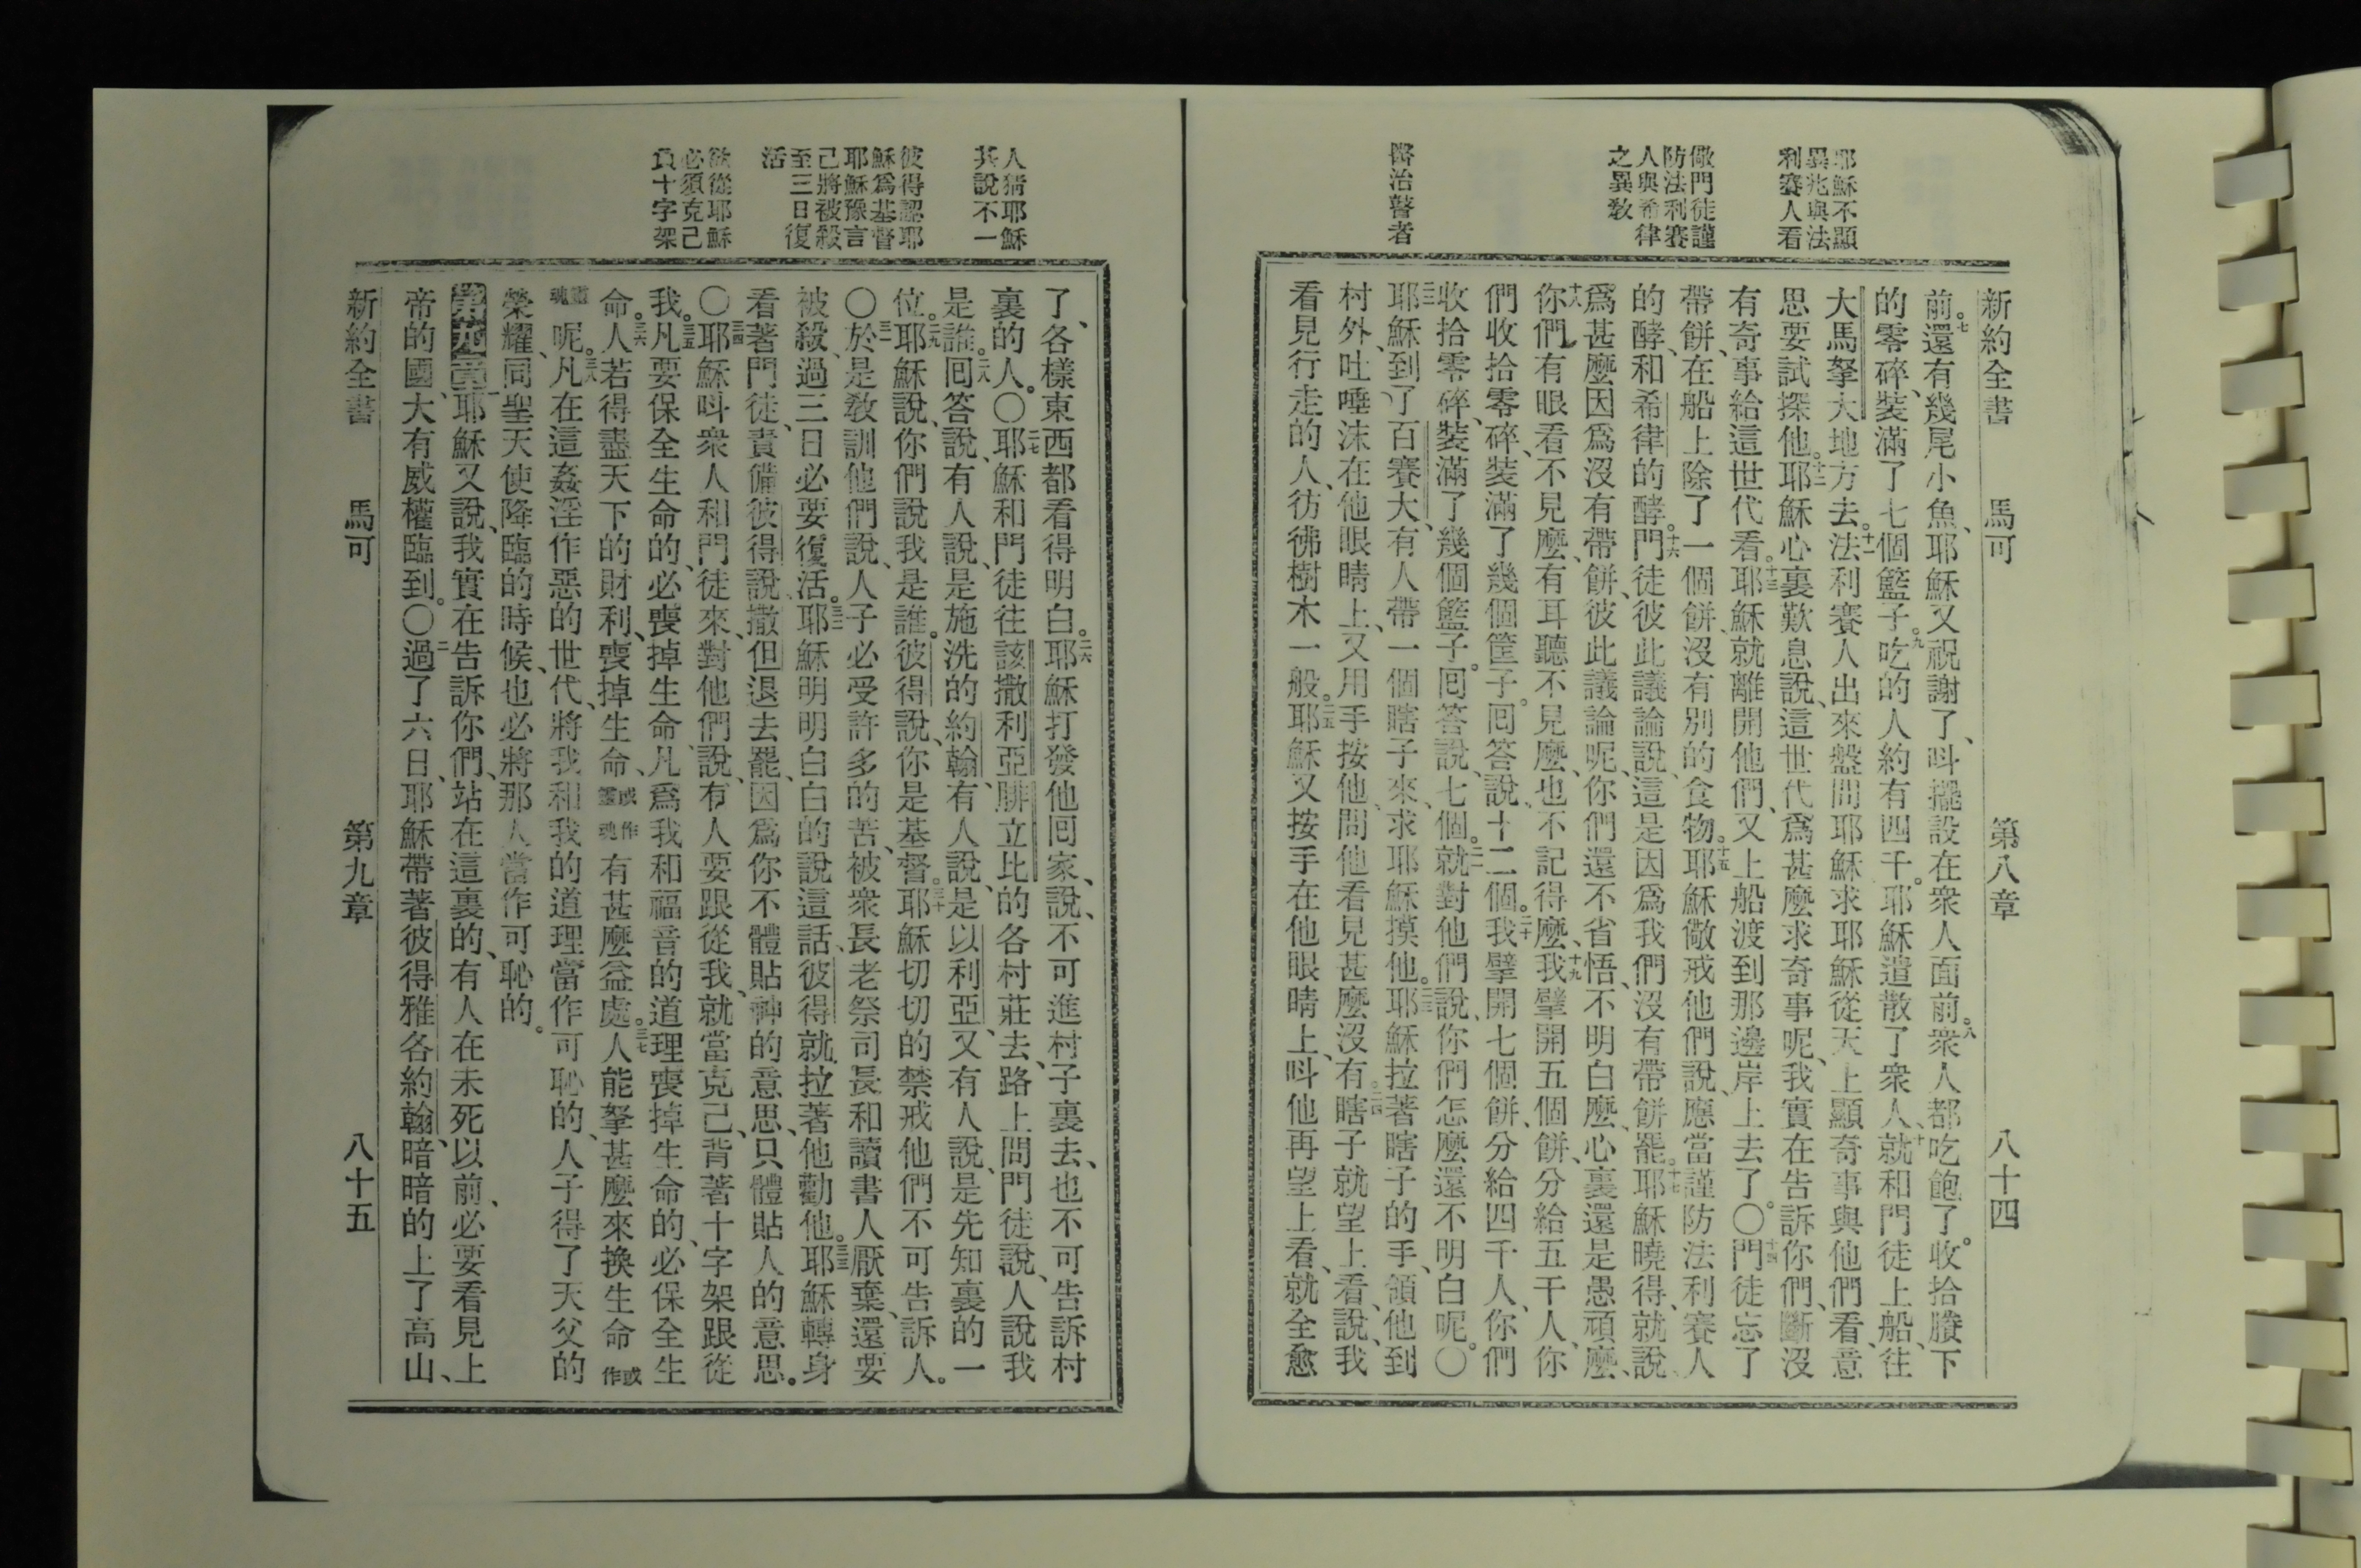 新約全書 馬可 第八章 八十四
耶穌不顯
異兆與法
利賽人看
儆門徒謹
防法利賽
人與希律
之異教
醫治瞽者
前。七還有幾尾小魚、耶穌又祝謝了、呌擺設在衆人面前。八衆人都吃飽了。收拾賸下
的零碎、裝滿了七個籃子。九吃的人約有四千。耶穌遣散了衆人、十就和門徒上船、往
大馬拏大地方去。十一法利賽人出來盤問耶穌求耶穌從天上顯奇事與他們看、意
思要試探他。十二耶穌心裏歎息說、這世代爲甚麼求奇事呢、我實在告訴你們、斷沒
有奇事給這世代看。十三耶穌就離開他們、又上船渡到那邊岸上去了。〇十四門徒忘了
帶餅、在船上除了一個餅、沒有別的食物。十五耶穌儆戒他們說、應當謹防法利賽人
的酵、和希律的酵。十六門徒彼此議論說、這是因爲我們沒有帶餅罷。十七耶穌曉得、就說、
爲甚麼因爲沒有帶餅、彼此議論呢、你們還不省悟、不明白麼、心裏還是愚頑麼、
十八你們有眼看不見麼、有耳聽不見麼、也不記得麼、十九我擘開五個餅、分給五千人、你
們收拾零碎、裝滿了幾個筐子。囘答說、十二個。二十我擘開七個餅、分給四千人、你們
收拾零碎、裝滿了幾個籃子。囘答說、七個。二一就對他們說、你們怎麼還不明白呢。〇
二二耶穌到了百賽大、有人帶一個瞎子來、求耶穌摸他。二三耶穌拉著瞎子的手、領他到
村外、吐唾沫在他眼睛上、又用手按他、問他看見甚麼沒有。二四瞎子就望上看、說、我
看見行走的人、彷彿樹木一般。二五耶穌又按手在他眼睛上、呌他再望上看、就全愈
人猜耶穌
其說不一
彼得認耶
穌爲基督
耶穌豫言
己將被殺、
至三日復
活
欲從耶穌
必須克己
負十字架
了、各樣東西都看得明白。二六耶穌打發他囘家、說、不可進村子裏去、也不可告訴村
裏的人。〇二七耶穌和門徒往該撒利亞腓立比的各村莊去、路上問門徒說、人說我
是誰。二八囘答說、有人說、是施洗的約翰、有人說、是以利亞、又有人說、是先知裏的一
位。二九耶穌說、你們說我是誰。彼得說、你是基督。三十耶穌切切的禁戒他們不可告訴人。
〇三一於是敎訓他們說、人子必受許多的苦、被衆長老祭司長和讀書人厭棄、還要
被殺、過三日必要復活。三二耶穌明明白白的說這話、彼得就拉著他勸他。三三耶穌轉身
看著門徒、責備彼得說、撒但退去罷、因爲你不體貼神的意思、只體貼人的意思。
〇三四耶穌呌衆人和門徒來、對他們說、有人要跟從我、就當克己、背著十字架跟從
我。三五凡要保全生命的、必喪掉生命、凡爲我和福音的道理喪掉生命的、必保全生
命。三六人若得盡天下的財利、喪掉生命、或作靈魂有甚麼益處。三七人能拏甚麼來換生命或作
靈魂呢。三八凡在這姦淫作惡的世代、將我和我的道理當作可恥的、人子得了天父的
榮耀、同聖天使降臨的時候、也必將那人當作可恥的。
第九章 一耶穌又說、我實在告訴你們、站在這裏的、有人在未死以前、必要看見上
帝的國、大有威權臨到。〇二過了六日、耶穌帶著彼得雅各約翰、暗暗的上了高山、
新約全書 馬可 第九章 八十五